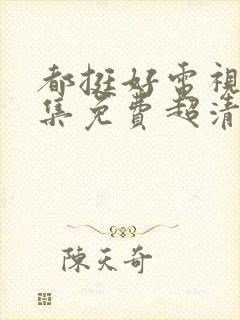 都挺好電視
集免費超清
陳天奇